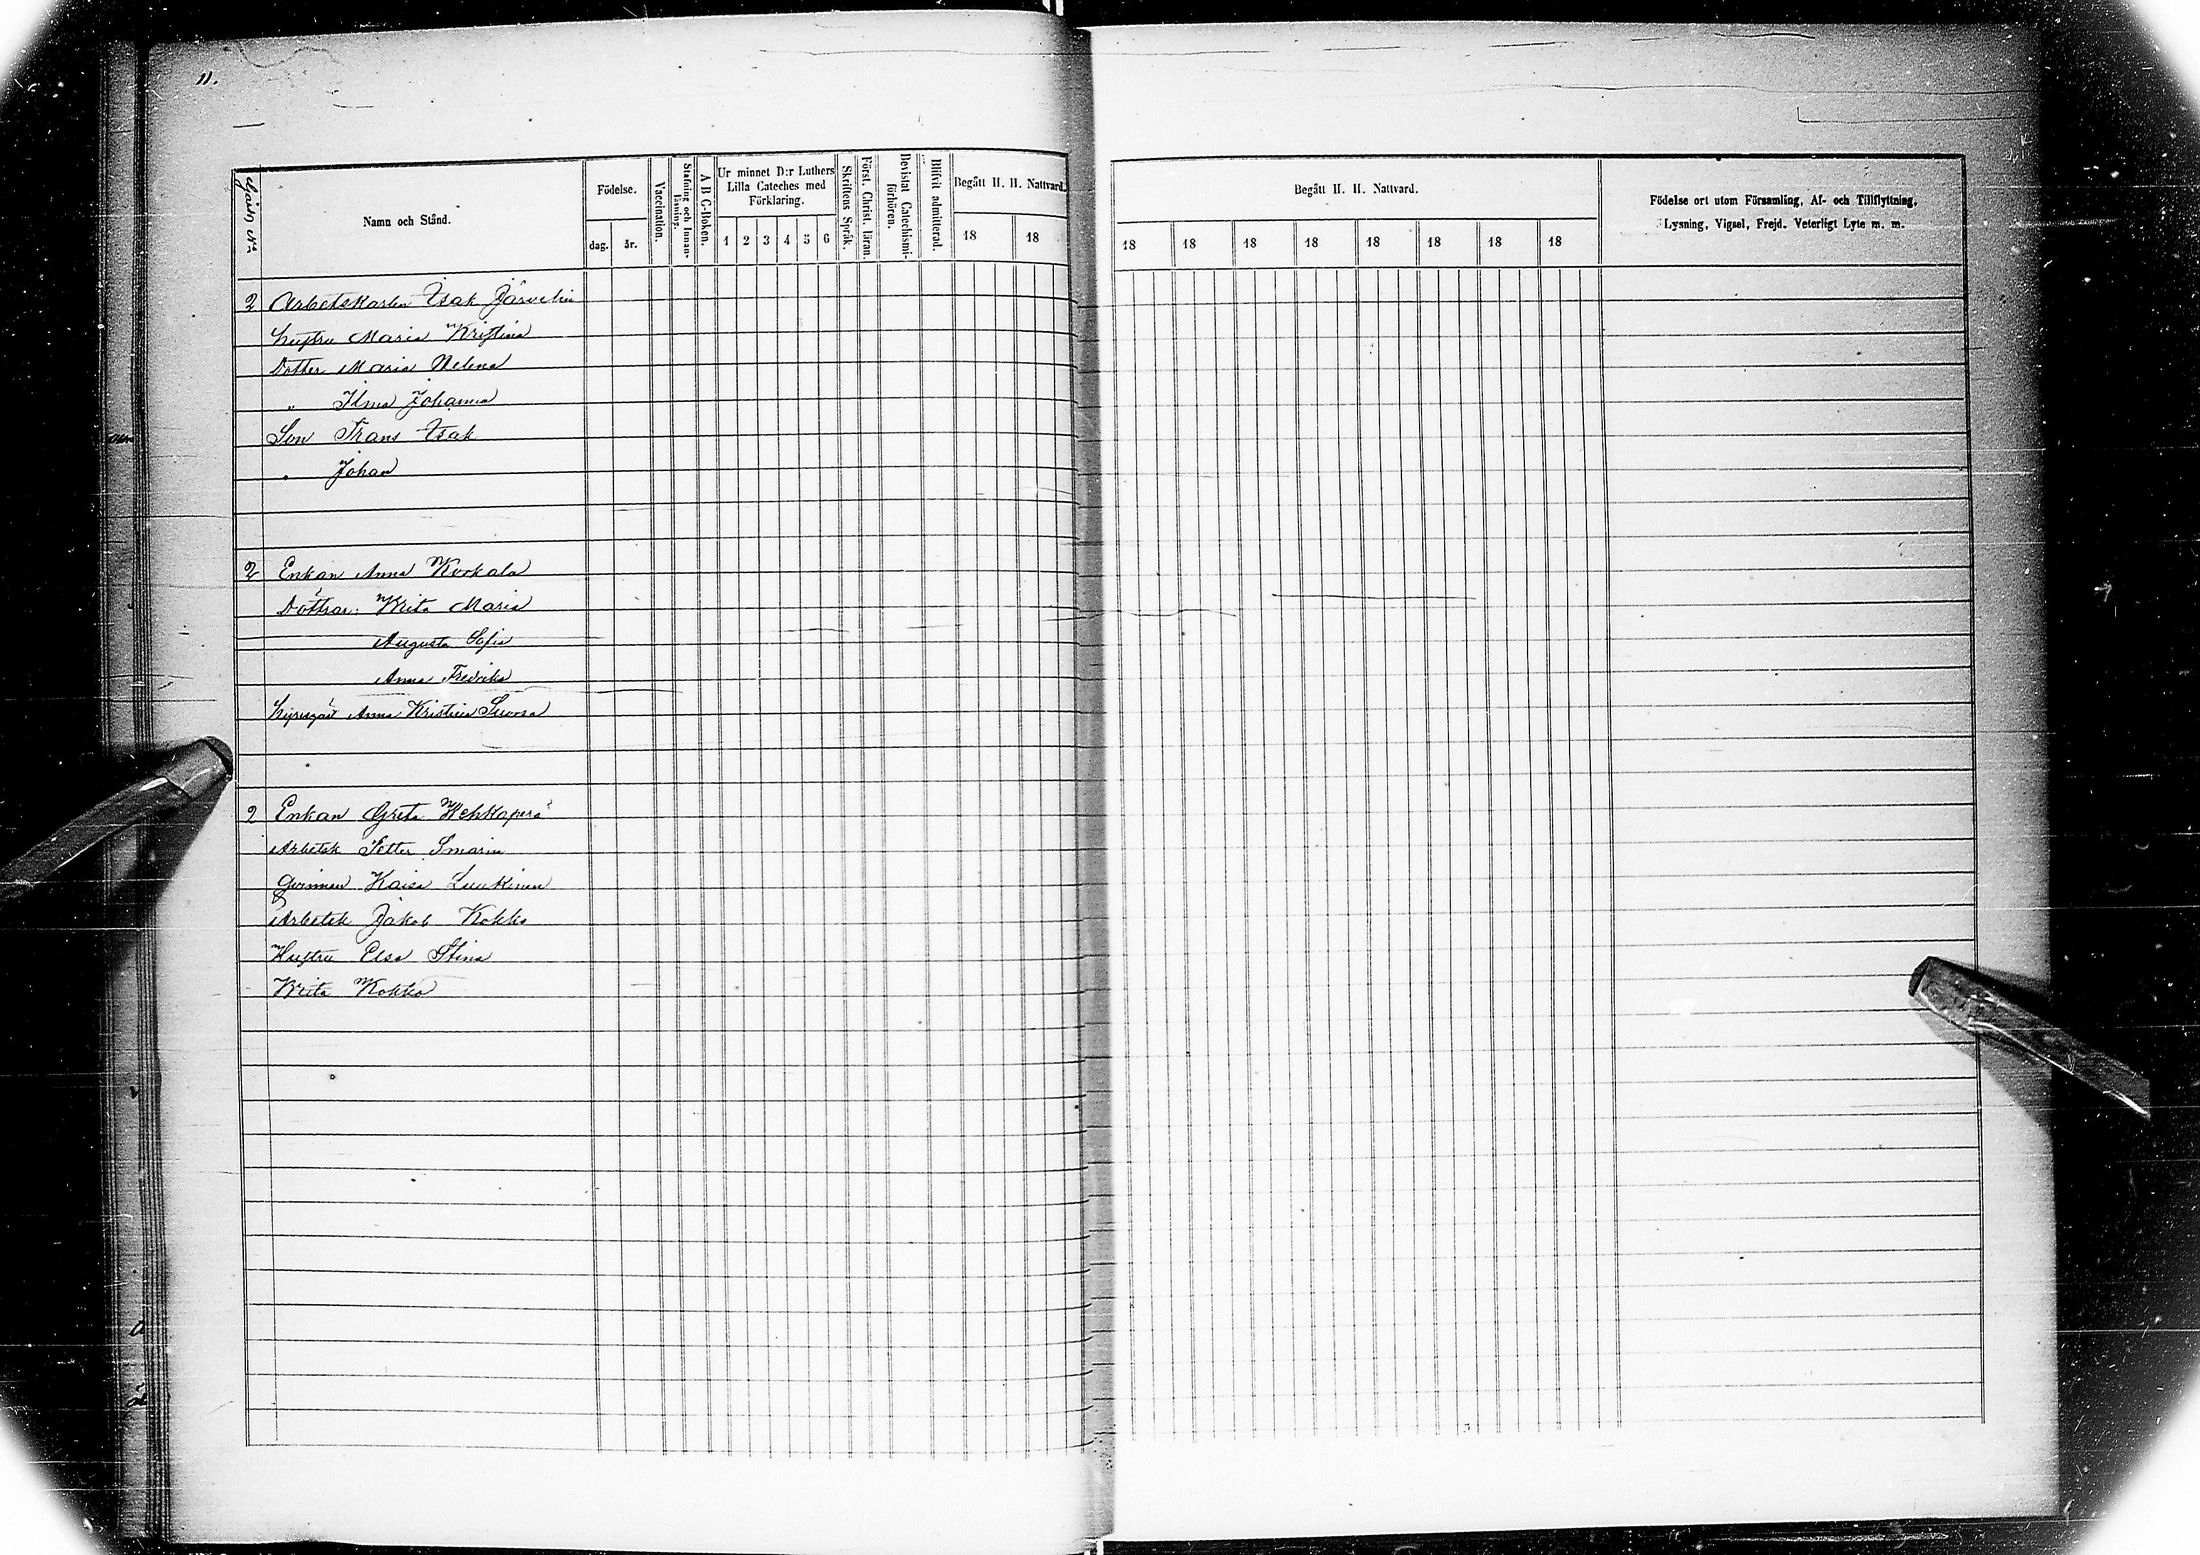 11.
Gårds No
Namn och Stånd.
Födelse.
dag. år.
Vaccination.
Stafning och Innan-läsning.
A B C-Boken.
Ur minnet D:r Luthers
Lilla Cateches med
Förklaring.
1 2 3 4 5 6
Skriftens Språk.
Först. Christ. läran.
Bevistat Catechismi-förhören.
Blifvit admitterad.
Begått H. H. Nattvard.
18 18
Begått H. H. Nattvard.
18 18 18 18 18 18 18 18
Födelse ort utom Församling, Af- och Tillflyttning,
Lysning, Vigsel, Frejd. Veterligt Lyte m. m.
2 Arbetskarlen Isak Järvelin
hustru Maria Kristina
Dotter Maria Helena
" Ilma Johanna
Son Frans Isak
" Johan
2 Enkan Anna Korkala
Döttrar: Brita Maria
Augusta Sofia
Anna Fredrika
Anna Kristina
2 Enkan Greta Hehkaperä
Arbetsk Petter
Qvinnan Kaisa Luukinen
Arbetsk Jakob Kokko
Hustru Elsa Stina
Brita Kokko